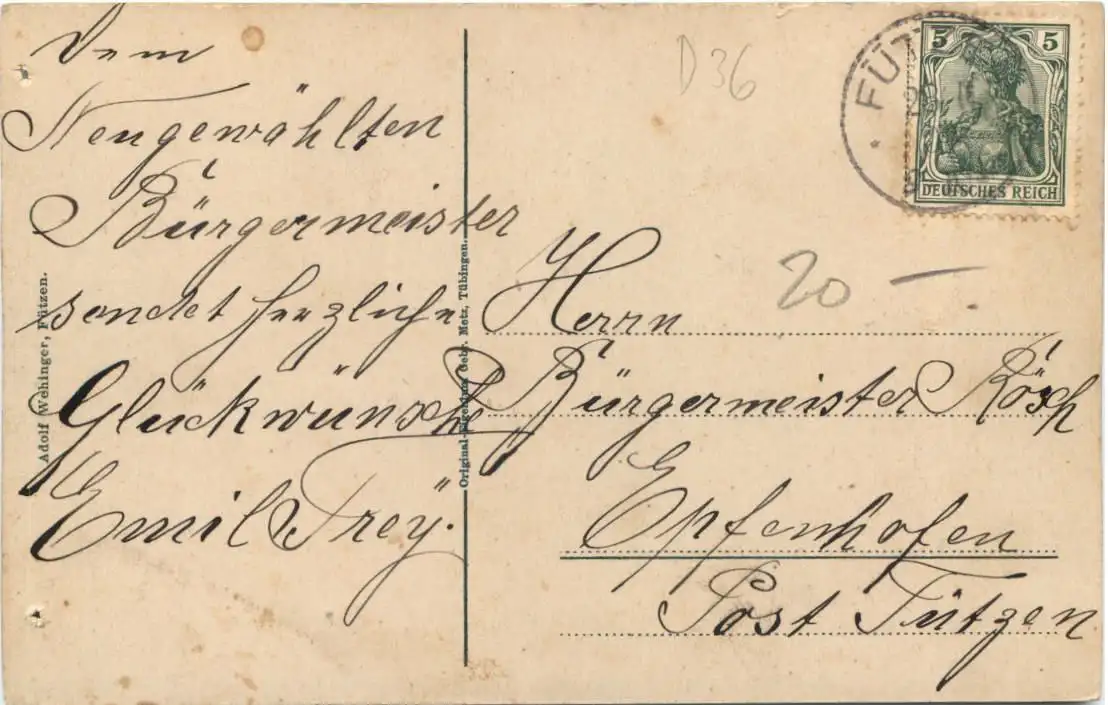 Dem
Neugewählten
Bürgermeister
sendet herzliche
Glückwünsche
Emil Freÿ.
Adolf Wehinger, Fützen.
Original-Eigentum Gebr. Metz, Tübingen.
D 36
FÜTZ
5 5
DEUTSCHES REICH
20 —
Herrn
Bürgermeister Rösch
Epfenhofen
Post Fützen